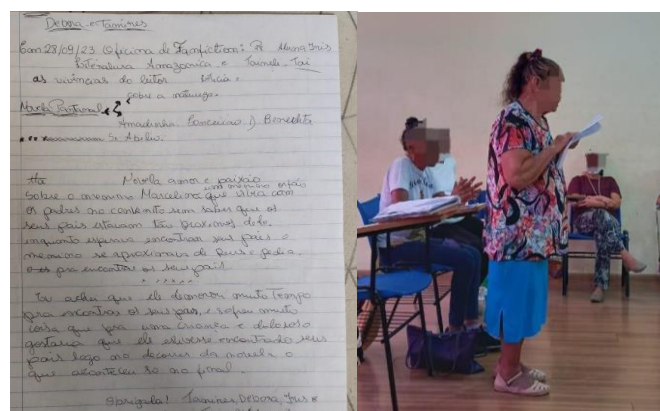 Debora e Tamires
Com 28/09/23 Oficina de Fanfiction: Pr
Literatura Amazonica e
as vivências do leitor
sobre a natureza.
Novela Pantanal
Amadinha Conceicao D. Benedita
Sr Abelio.
Novela amor e paixão
Sobre o menino Marcelino que vivia com
um menino orfão
os padres no convento sem saber que os
seus pais estavam tão proximos dele
enquanto esperava encontrar seus pais o
menino se aproximava de Deus e pedia
pra encontrar os seus pais
Eu achei que ele demorou muito tempo
pra encontrar os seus pais, e sofreu muito
coisa que pra uma criança e doloroso
gostaria que ele tivesse encontrado seus
pais logo no decorrer da novela o
que aconteceu so no final.
Obrigada! Tamires, Debora, Iris e